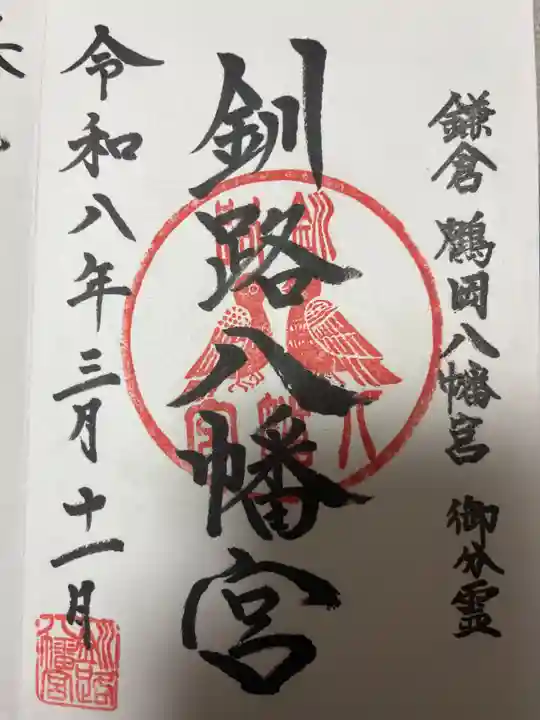 鎌倉 鶴岡八幡宮 御分霊
釧路八幡宮
令和八年三月十一日
釧路八幡宮